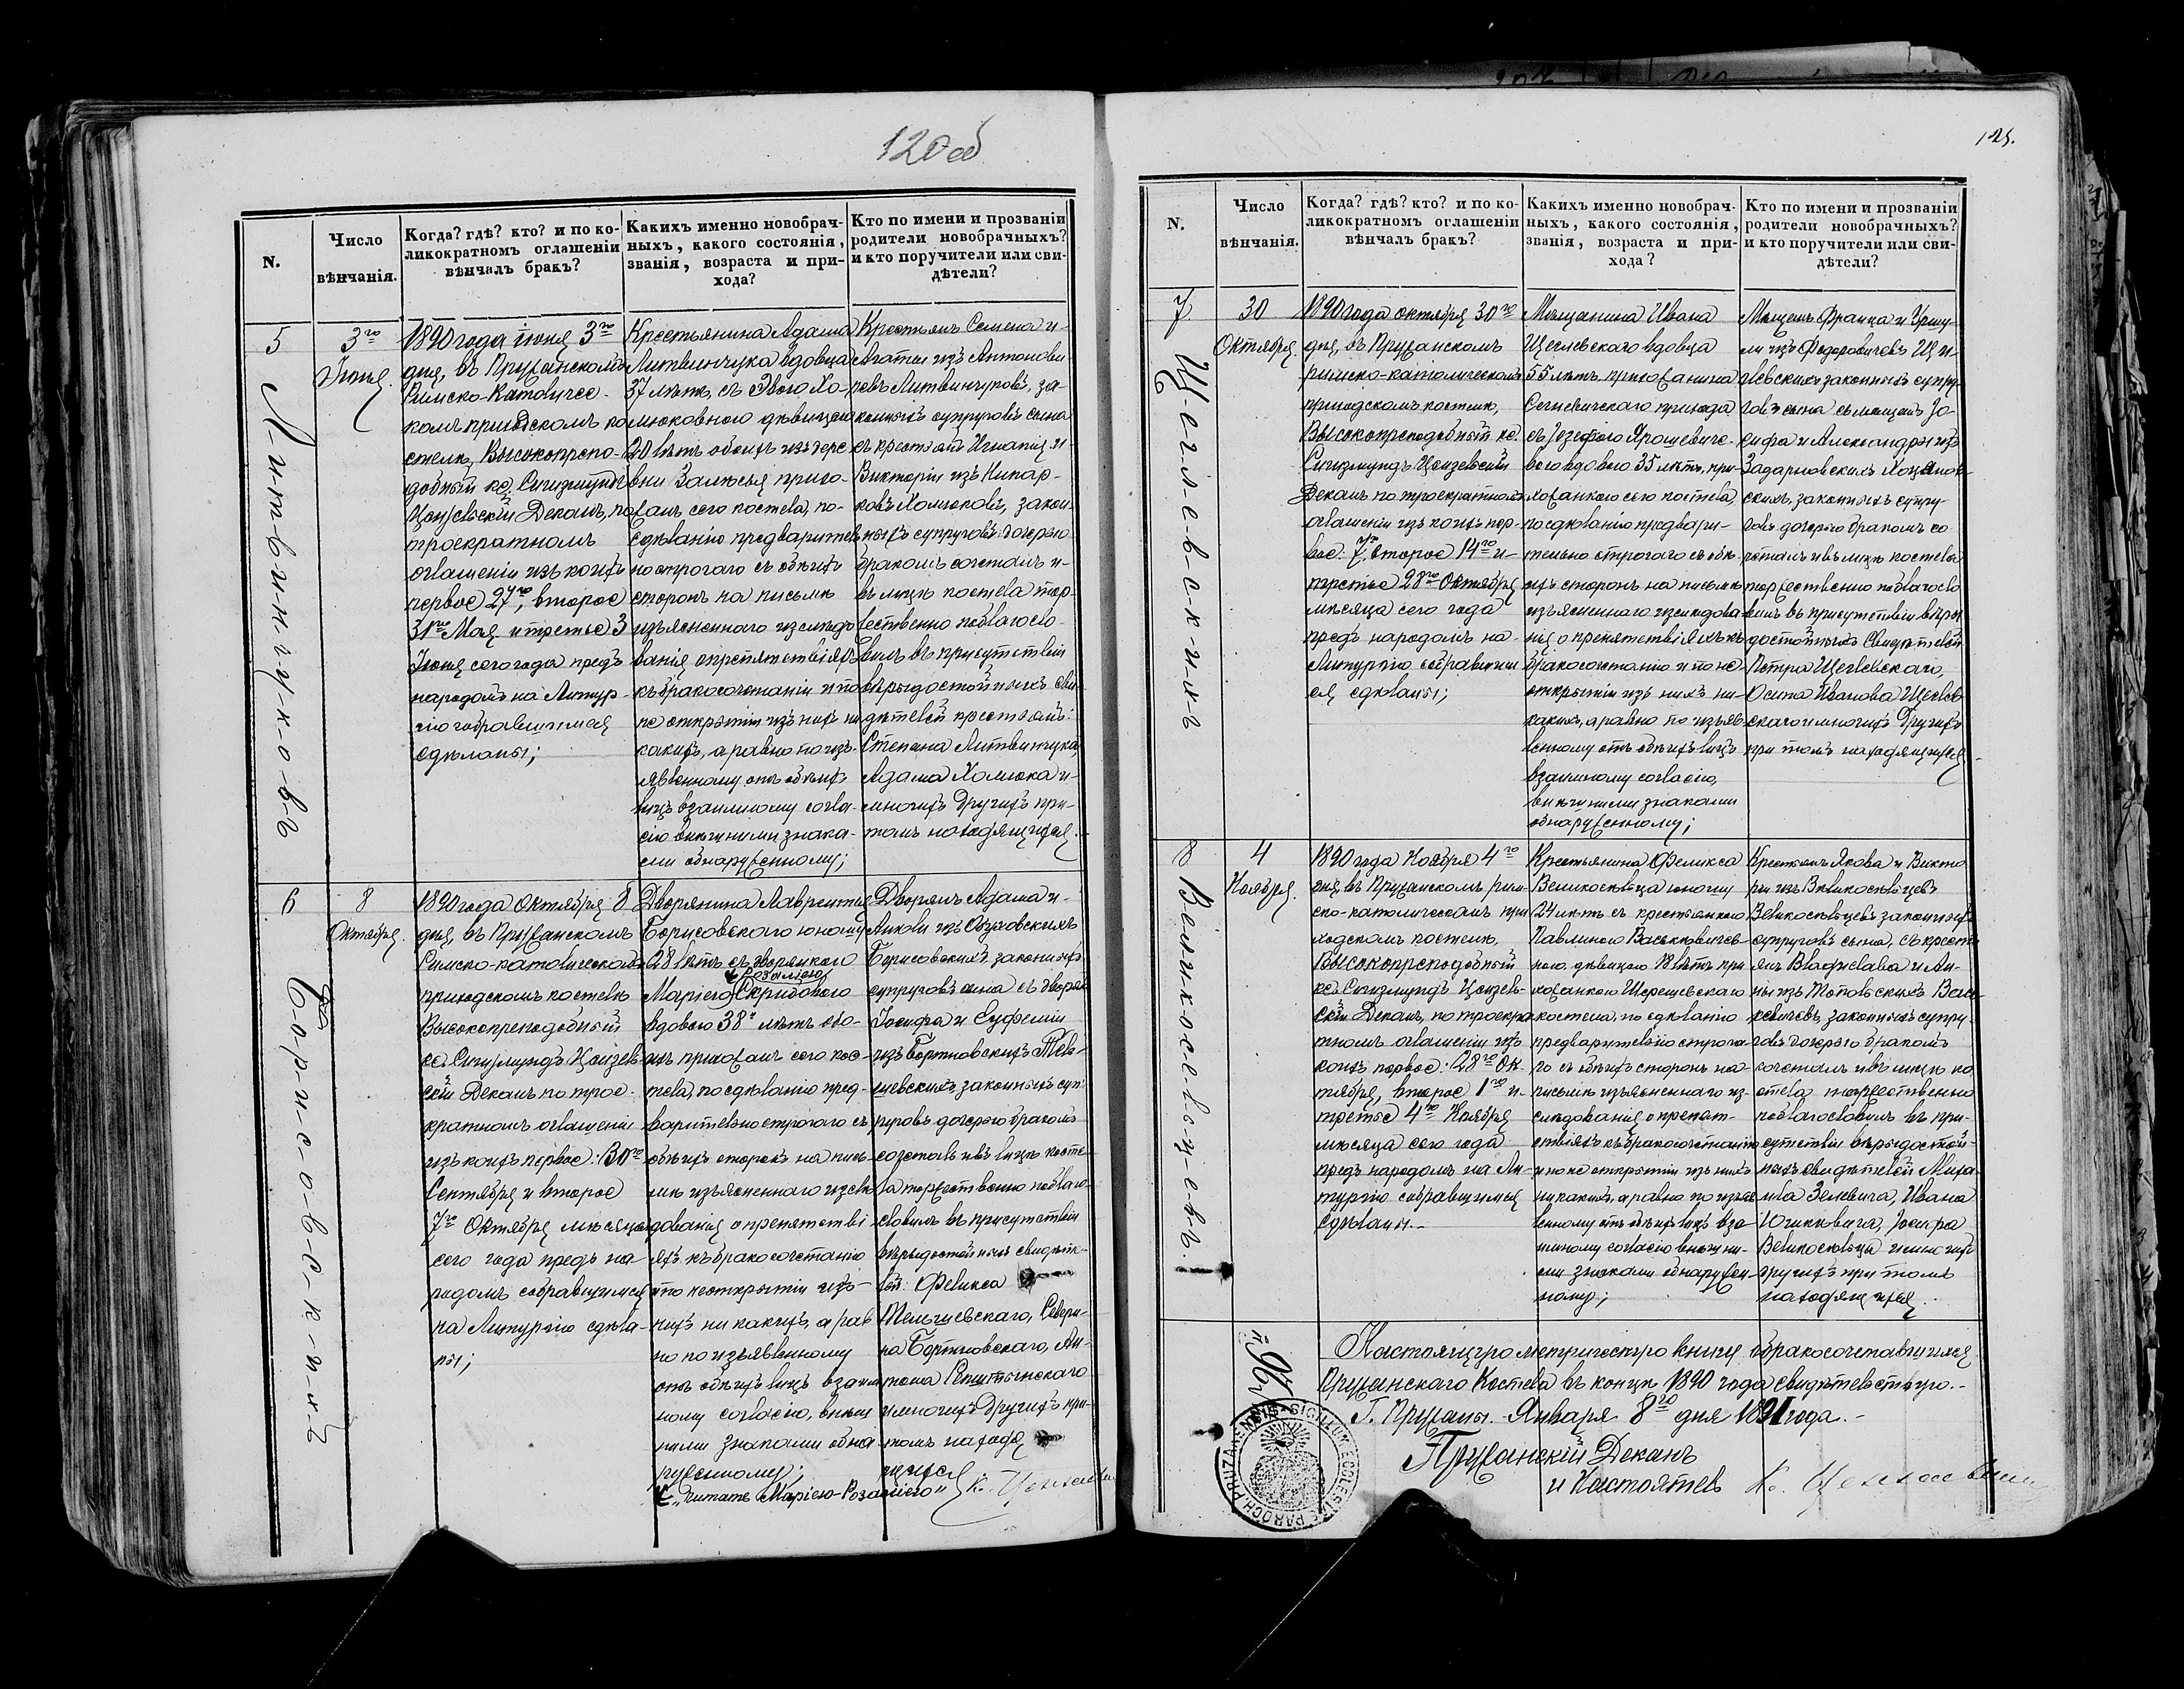 120 об
N.
Число
вѣнчанія.
Когда? гдѣ? кто? и по ко-
ликократномъ оглашеніи
вѣнчалъ бракъ?
Какихъ именно новобрач-
ныхъ, какого состоянія,
званія, возраста и при-
хода?
Кто по имени и прозванію
родители новобрачныхъ?
и кто поручители или сви-
дѣтели?
5
Литвинчуковъ
3го
Іюня.
1890 года іюня 3го
дня, въ Пружанскомъ
Римско-Католичес-
комъ приходскомъ ко-
стелѣ, Высокопрепо-
добный кс. Сигизмундъ
Деканъ, по
троекратномъ
оглашеніи изъ коихъ
первое 27го, второе
31го Мая и третье 3
Іюня сего года предъ
народомъ на Литур-
гію собравшимся
сдѣланы;
Крестьянина Адама
Литвинчука вдовца
37 лѣтъ, съ Евою Хо-
мюковною дѣвицею
20 лѣтъ обоихъ изъ дере-
вни Залѣсья прихо-
жанъ сего костела, по
сдѣланію предварител
но строгаго съ обѣихъ
сторонъ на письмѣ
изъясненнаго изслѣдо
ванія о препятствіяхъ
къ бракосочетанію и по
не открытіи изъ нихъ ни
какихъ, а равно по изъ-
явленному отъ обѣихъ
лицъ взаимному согла-
сію внѣшними знака-
ми обнаруженному;
Крестьянъ Семена и
Агаты изъ Антонови
чевъ Литвинчуковъ, за-
конныхъ супруговъ сына
съ крестьянъ Игнатія и
Викторіи изъ
Хомюковъ, закон-
ныхъ супруговъ дочерью
бракомъ сочеталъ и
въ лицѣ костела тор-
жественно поблагосло-
вилъ въ присутствіи
вѣрыдостойныхъ сви-
дѣтелей крестьянъ:
Степана Литвинчука,
Адама Хомюка и
многихъ другихъ при
томъ находящихся.
6
Борисовскихъ
8
Октября.
1890 года Октября 8
дня, въ Пружанскомъ
Римско-католическомъ
приходскомъ костелѣ
Высокопреподобный
кс. Сигизмундъ
Деканъ по трое-
кратномъ оглашеніи
изъ коихъ первое: 30го
Сентября и второе
7го Октября мѣсяца
сего года предъ на-
родомъ собравшимся
на Литургію сдѣла-
ны;
Дворянина Лаврентія
Борисовскаго юношу
28 лѣтъ съ дворянкою
Розаліею
Маріею Скридовою
вдовою 38 лѣтъ обо-
ихъ прихожанъ сего кос-
тела, по сдѣланію пред-
варительно строгаго съ
обѣихъ сторонъ на пись-
мѣ изъясненнаго изслѣ
дованія о препятстві
яхъ къ бракосочетанію
и по неоткрытіи изъ
нихъ никакихъ, а рав
но по изъявленному
отъ обѣихъ лицъ взаи
мному согласію, внѣш
ними знаками обна
руженному;
Дворянъ Адама и
Борисовскихъ законныхъ
супруговъ сына съ дворян
Іосифа и Евфеміи
изъ Бортновскихъ
законныхъ суп-
руговъ дочерью бракомъ
сочеталъ и въ лицѣ косте-
ла торжественно поблаго-
словилъ въ присутствіи
вѣрыдостойныхъ свидѣте-
лей: Феликса
Севери-
на Бортновскаго, Ан-
и многихъ другихъ при
томъ находя
щихся
„читать Маріею-Розаліею“
121.
N.
Число
вѣнчанія.
Когда? гдѣ? кто? и по ко-
ликократномъ оглашеніи
вѣнчалъ бракъ?
Какихъ именно новобрач-
ныхъ, какого состоянія,
званія, возраста и при-
хода?
Кто по имени и прозванію
родители новобрачныхъ?
и кто поручители или сви-
дѣтели?
7
Щеглевскихъ
30
Октября.
1890 года октября 30го
дня, въ Пружанскомъ
римско-католическомъ
приходскомъ костелѣ,
Высокопреподобный кс.
Сигизмундъ
Деканъ по троекратномъ
оглашеніи изъ коихъ пер-
вое: 7го второе 14го и
третье 28го Октября
мѣсяца сего года
предъ народомъ на
Литургію собравшим
ся сдѣланы;
Мѣщанина Ивана
Щеглевскаго вдовца
55 лѣтъ прихожанина
прихода
съ Іозефою Ярошевиче-
вою вдовою 35 лѣтъ, при-
хожанкою сего костела,
по сдѣланію предвари-
тельно строгаго съ обѣ-
ихъ сторонъ на письмѣ
изъясненнаго изслѣдова
нія о препятствіяхъ къ
бракосочетанію и по не
открытіи изъ нихъ ни-
какихъ, а равно по изъяв
ленному отъ обѣихъ лицъ
взаимному согласію,
внѣшними знаками
обнаруженному;
Мѣщанъ Франца и Уршу-
ли изъ Федоровичевъ Щ
глевскихъ законныхъ супру-
говъ сына съ мѣщанъ Іо-
сифа и Александры изъ
законныхъ супру-
говъ дочерью бракомъ со
четалъ и въ лицѣ костела
торжественно поблагосло
вилъ въ присутствіи вѣры
достойныхъ Свидѣтелей
Петра Щеглевскаго,
Осипа Иванова Щеглев-
скаго и многихъ другихъ
при томъ находящихся.
8
Великосельцевъ.
4
Ноября.
1890 года Ноября 4го
дня, въ Пружанскомъ рим-
ско-католическомъ при
ходскомъ костелѣ,
Высокопреподобный
кс. Сигизмундъ
Деканъ, по троекра
тномъ оглашеніи изъ
коихъ первое: 28го Ок-
тября, второе 1го и
третье 4го Ноября
мѣсяца сего года
предъ народомъ на Ли-
тургію собравшимся
сдѣланы.
Крестьянина Феликса
Великосельца юношу
24 лѣтъ съ крестьянкою
Павлиною Васькевичев-
ною дѣвицею 18 лѣтъ при
хожанкою Шерешевскаго
костела, по сдѣланію
предварительно строга
го съ обѣихъ сторонъ на
письмѣ изъясненнаго из-
слѣдованія о препят-
ствіяхъ къ бракосочетанію
и по не открытіи изъ нихъ
никакихъ, а равно по изъяв
ленному отъ обѣихъ лицъ вза
имному согласію внѣшни-
ми знаками обнаружен-
ному;
Крестьянъ Якова и Викто
ріи изъ Великосельцевъ
Великосельцевъ законныхъ
супруговъ сына, съ кресть
янъ Владислава и Ан-
ны изъ Топольскихъ Вась-
кевичевъ, законныхъ супру-
говъ дочерью бракомъ
сочеталъ и въ лицѣ ко
стела торжественно
поблагословилъ въ при-
сутствіи вѣрыдостой-
ныхъ свидѣтелей Миха-
ила Зеневича, Ивана
Іосифа
Великосельца и многихъ
другихъ при томъ
находящихся.
№ 96
SIGILLUM ECCLESIAE PAROCH PRUZANENSIS
Настоящую метрическую книгу бракосочетавшихся
Пружанскаго Костела въ концѣ 1890 года свидѣтельствую.
Г. Пружаны. Января 8го дня 1891 года.
Пружанскій Деканъ
и Настоятель